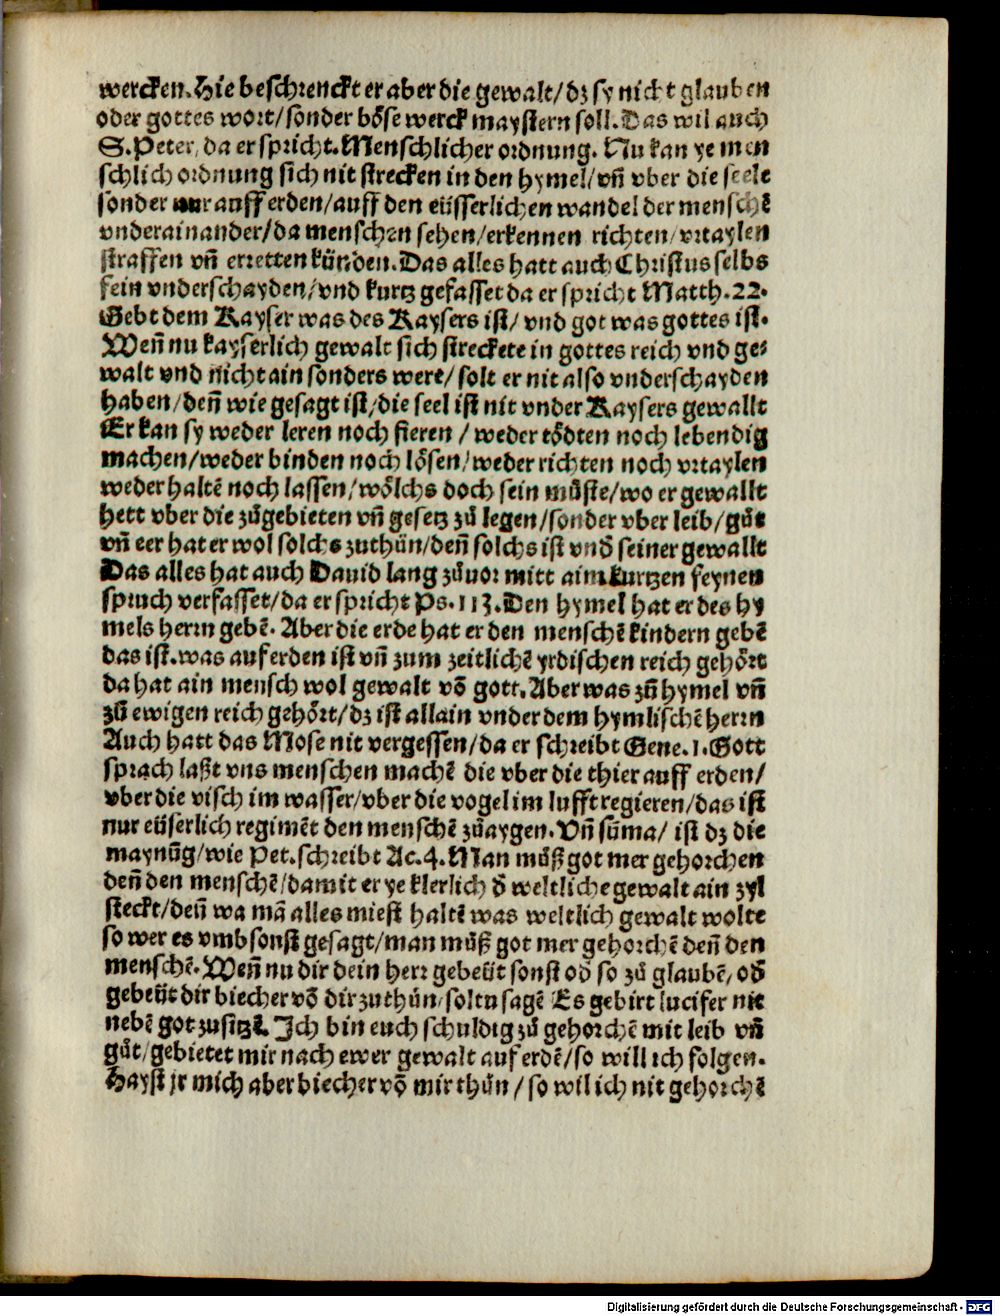 wercken. Hie beschrenckt er aber die gewalt/ dz sy nicht glauben
oder gottes wort/ sonder boͤse werck maystern soll. Das wil auch
S. Peter, da er spricht. Menschlicher ordnung. Nu kan ye men
schlich ordnung sich nit strecken in den hymel/ vñ vber die seele
sonder nur auff erden/ auff den eüsserlichen wandel der menschẽ
vnderainander/ da menschen sehen/ erkennen richten/ vrtaylen
straffen vñ erretten künden. Das alles hatt auch Christus selbs
fein vnderschayden/ vnd kurtz gefasset da er spricht Matth. 22.
Gebt dem Kayser was des Kaysers ist/ vnd got was gottes ist.
Weñ nu kayserlich gewalt sich streckete in gottes reich vnd ge⸗
walt vnd nicht ain sonders were/ solt er nit also vnderschayden
haben/ deñ wie gesagt ist/ die seel ist nit vnder Kaysers gewallt
Er kan sy weder leren noch fieren / weder toͤdten noch lebendig
machen/ weder binden noch loͤsen/ weder richten noch vrtaylen
weder haltẽ noch lassen/ woͤlchs doch sein muͤste/ wo er gewallt
hett vber die zuͦgebieten vñ gesetz zuͦ legen/ sonder vber leib/ guͦt
vñ eer hat er wol solchs zuthuͦn/ deñ solchs ist vnd̄ seiner gewallt
Das alles hat auch Dauid lang zuͦuor mitt aim kurtzen feynen
spruch verfasset/ da er spricht Ps. 113. Den hymel hat er des hy
mels herrn gebẽ. Aber die erde hat er den menschẽ kindern gebẽ
das ist. was auf erden ist vñ zum zeitlichẽ yrdischen reich gehoͤrt
da hat ain mensch wol gewalt võ gott. Aber was zuͦ hymel vñ
zuͦ ewigen reich gehoͤrt/ dz ist allain vnder dem hymlischẽ herrn
Auch hatt das Mose nit vergessen/ da er schreibt Gene. 1. Gott
sprach laßt vns menschen machẽ die vber die thier auff erden/
vber die visch im wasser/ vber die vogel im lufft regieren/ das ist
nur eüserlich regimẽt den menschẽ zuͦaygen. Vñ sũma/ ist dz die
maynũg/ wie Pet. schreibt Ac. 4. Man muͦß got mer gehorchen
deñ den menschẽ/ damit er ye klerlich d̄ weltliche gewalt ain zyl
steckt/ deñ wa mã alles miest haltẽ was weltlich gewalt wolte
so wer es vmbsonst gesagt/ man muͦß got mer gehorchẽ deñ den
menschẽ. Weñ nu dir dein herr gebeüt sonst od̄ so zuͦ glaubẽ, od̄
gebeüt dir biecher võ dir zuthuͦn/ soltu sagẽ Es gebirt lucifer nit
nebẽ got zusitzẽ. Ich bin euch schuldig zuͦ gehorchẽ mit leib vñ
guͦt/ gebietet mir nach ewer gewalt auf erdẽ/ so will ich folgen.
Hayst jr mich aber biecher võ mir thuͦn / so wil ich nit gehorchẽ
Digitalisierung gefördert durch die Deutsche Forschungsgemeinschaft - DFG